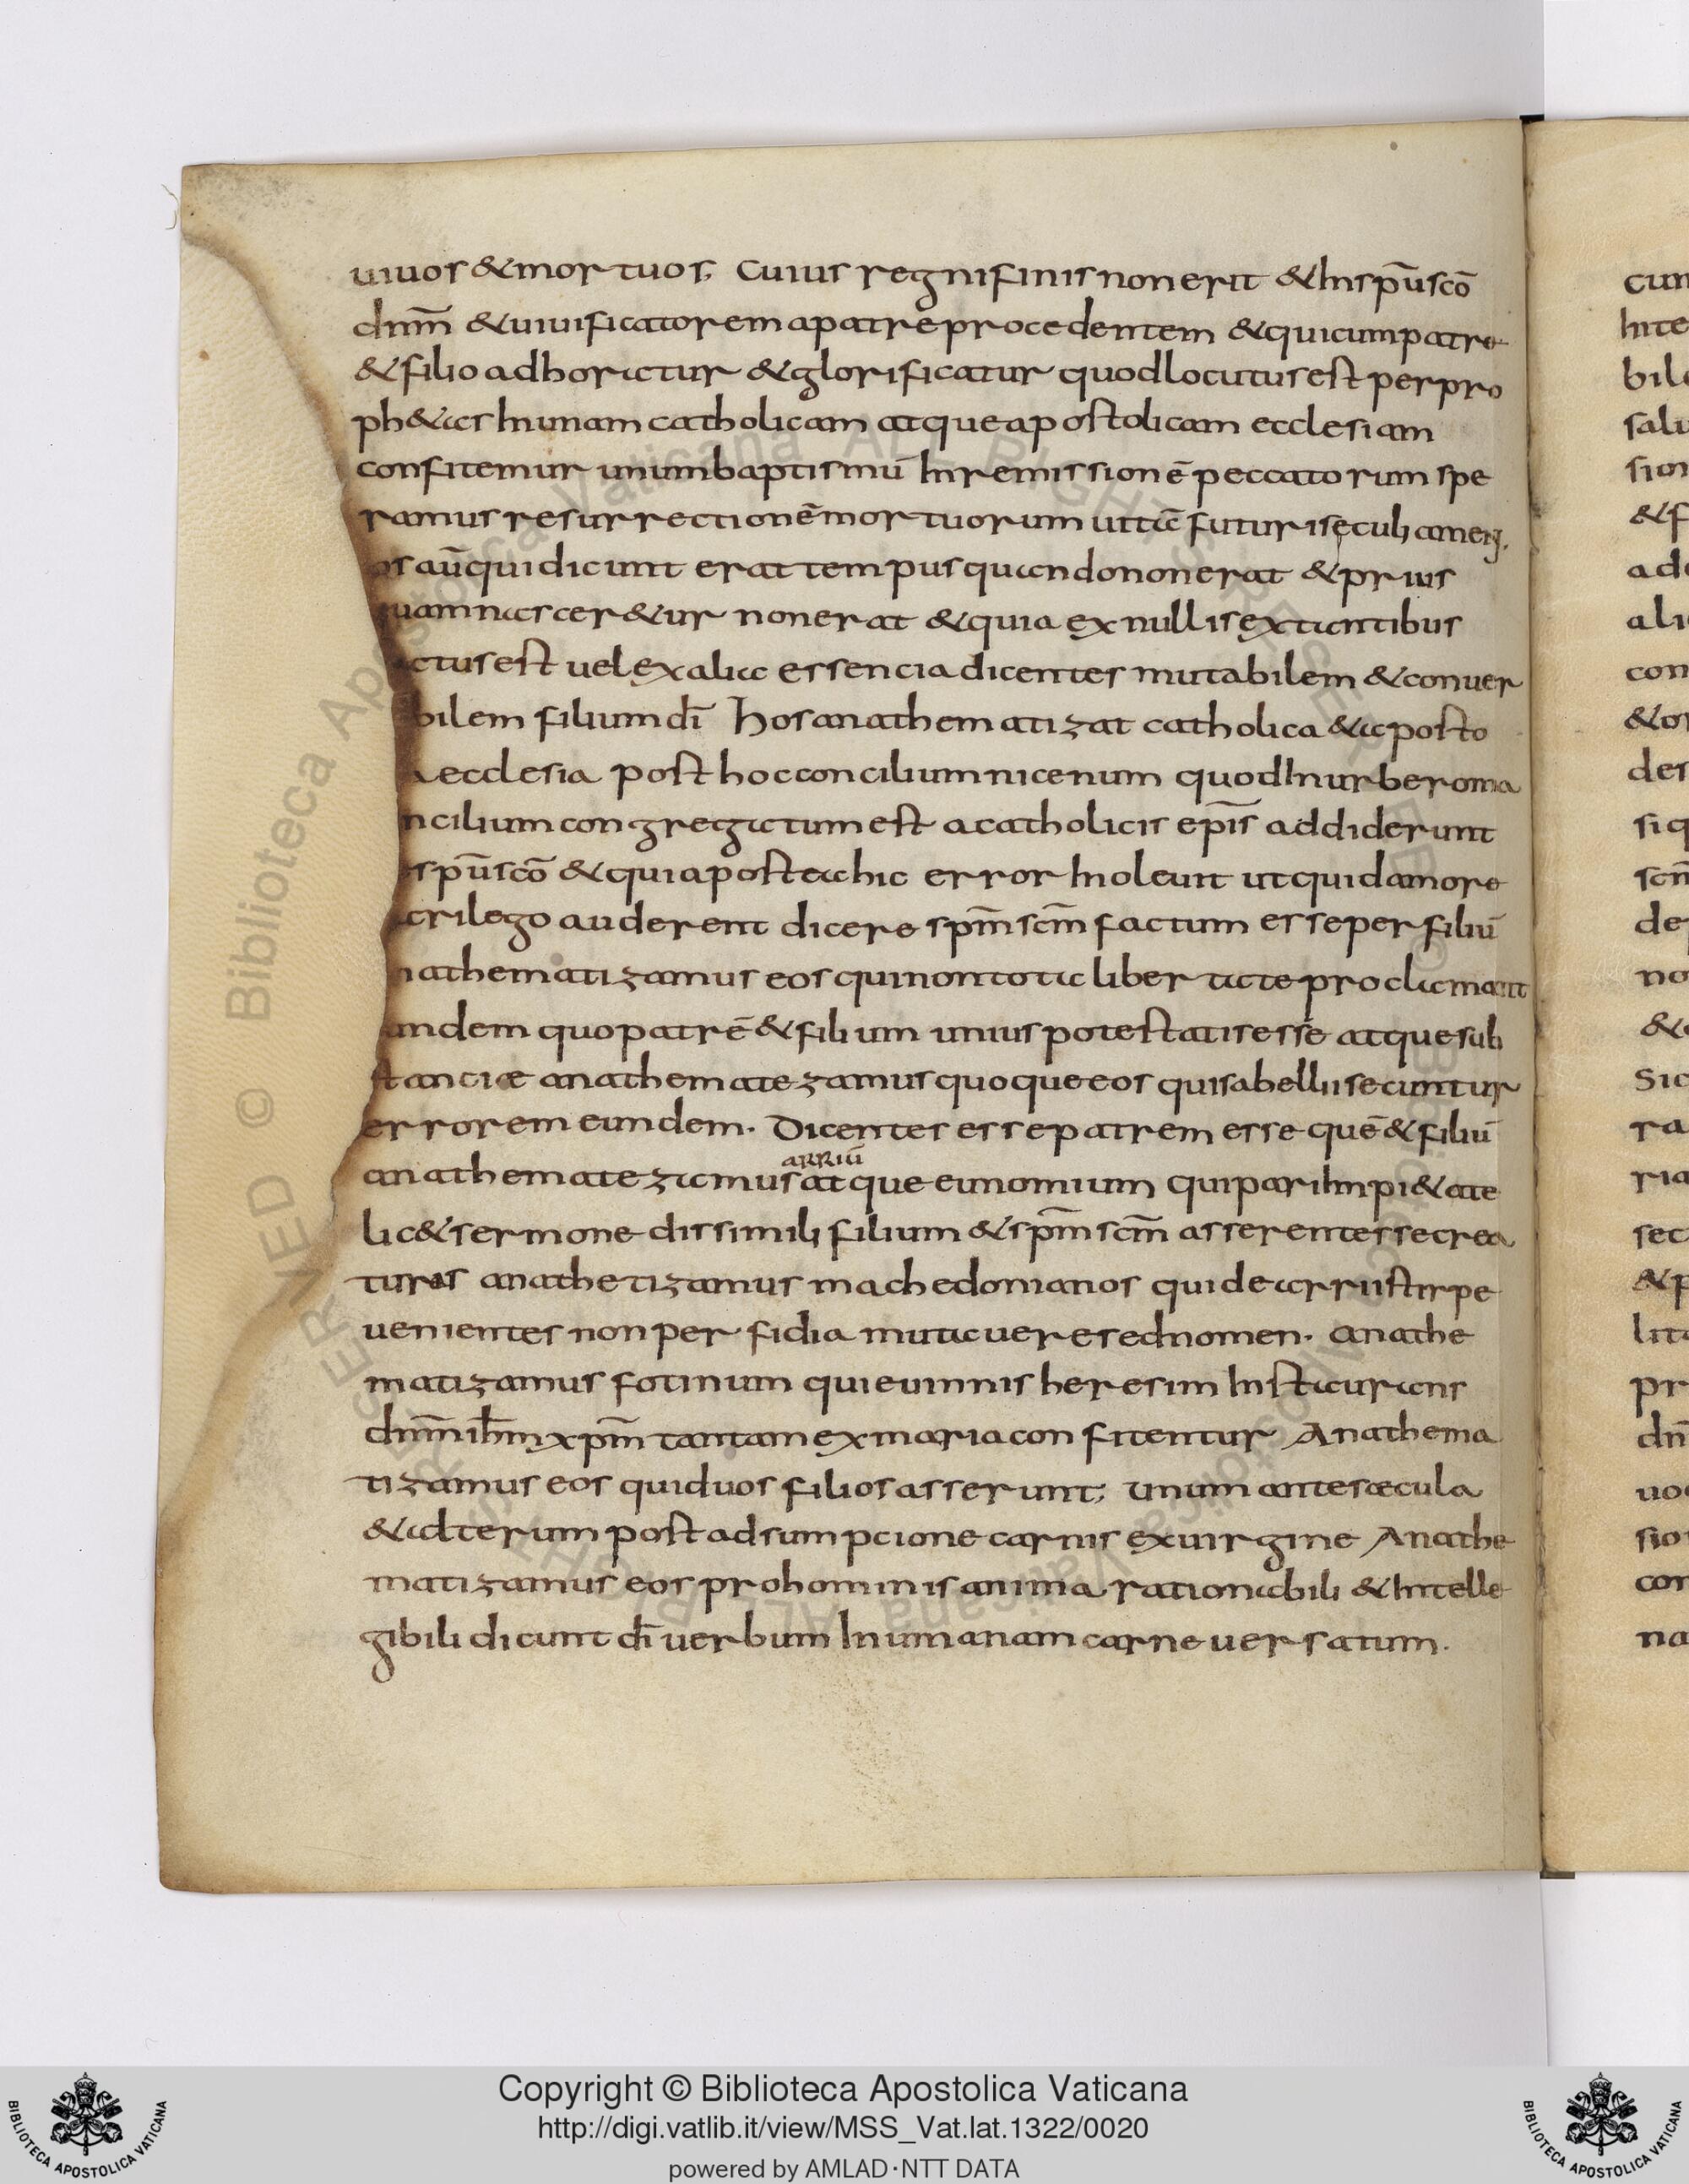 uiuos & mortuos; Cuius regni finis non erit & In spu sco
dnm & uiuificatorem a patre procedentem & qui cum patre
& filio adhoratur & glorificatur quod locutus est per pro
ph&as In unam catholicam atque apostolicam ecclesiam
confitemur unum baptismū In remissionē peccatorum spe
ramus resurrectionē mortuorum uitā futuri seculi amen.
os aū qui dicunt erat tempus quando non erat & prius
uam nascer&ur non erat & quia ex nullis extantibus
ctus est uel ex alia essencia dicentes mutabilem & conuer
bilem filium di hos anathematizat catholica & aposto
a ecclesia post hoc concilium nicenum quod In urbe roma
ncilium congregatum est a catholicis epis addiderunt
spu sco & quia postea hic error Inoleuit ut quidam ore
crilego auderent dicere spm scm factum esse per filiū
nathematizamus eos qui non tota libertate proclamant
undem quo patrē & filium unius potestatis esse atque sub
stanciæ anathematezamus quoque eos qui sabellii secuntur
errorem eundem. Dicentes esse patrem esse quē & filiū
ARRIŪ
anathematezamus atque eunomium qui pari Inpi&ate
lic& sermone dissimili filium & spm scm asserentes se crea
turas anathetizamus machedonianos qui de arrii stirpe
uenientes non perfidia mutauere sed nomen. anathe
matizamus fotinum qui euinnis heresim Instaurans
dnm ihm xpm tantam ex maria confitentur Anathema
tizamus eos qui duos filios asserunt; unum ante sæcula
& alterum post adsumpcione carnis ex uirgine Anathe
matizamus eos pro hominis anima rationabili & Intelle
gibili dicunt di uerbum In umanam carne uersatum.
cun
Inte
salu
sion
& f
con
si q
scm
no
Sic
ra
ria
sec
& p
pr
dn
con
na
Copyright © Biblioteca Apostolica Vaticana
http://digi.vatlib.it/view/MSS_Vat.lat.1322/0020
powered by AMLAD·NTT DATA
BIBLIOTECA APOSTOLICA VATICANA
BIBLIOTECA APOSTOLICA VATICANA